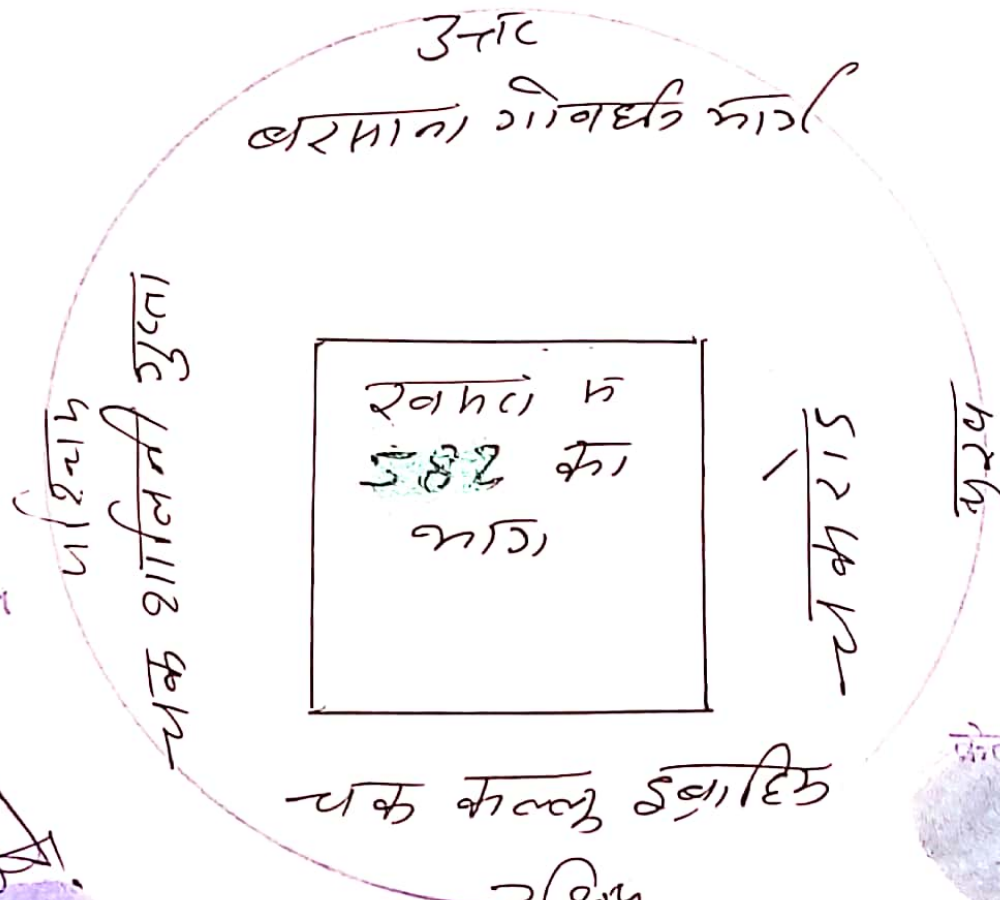 उत्तर
बरसाना गोवर्धन मार्ग
पश्चिम
चक शालिनी गुप्ता
खसरा नं
582 का
भाग
चकरोड
पूरब
चक कल्लू इब्राहिम
दक्षिण